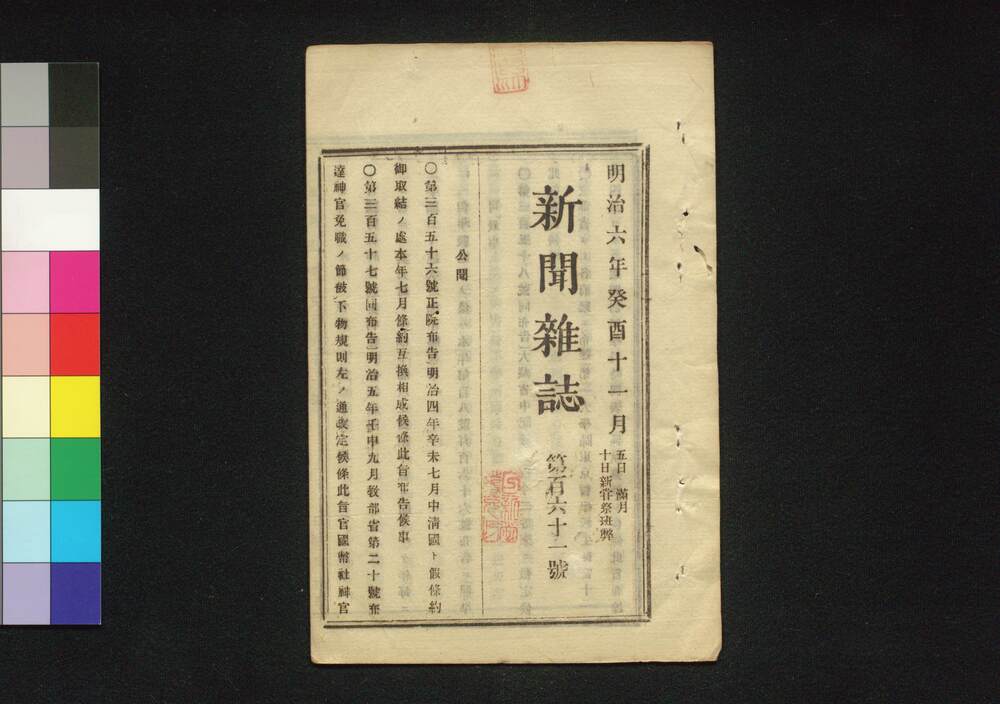 明治六年癸酉十一月
五日 滿月
十日新甞祭班幣
新聞雜誌
第百六十一號
公聞
〇第三百五十六號正院布告明治四年辛未七月中清國ト假條約
御取結ノ處本年七月條約互換相成候條此旨布告候事
〇第三百五十七號同布告明治五年壬申九月教部省第二十號布
達神官免職ノ節被下物規則左ノ通改定候條此旨官國幣社神官